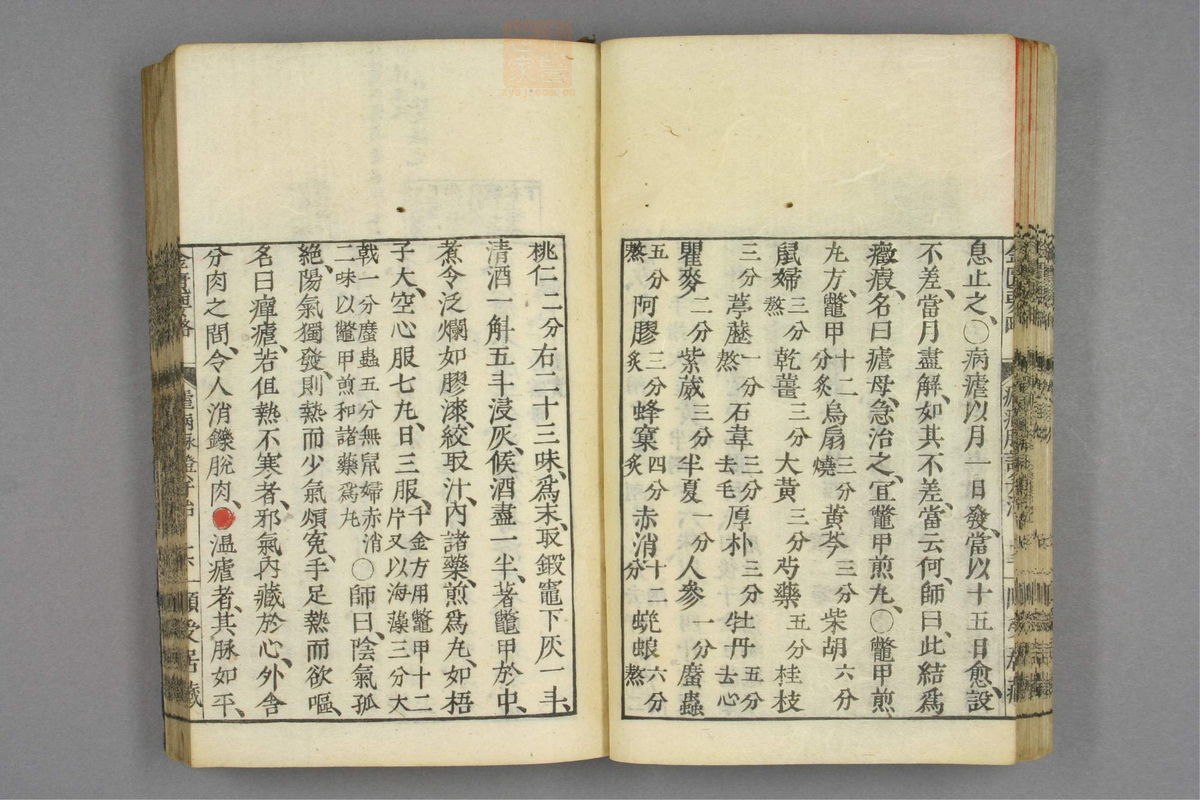 息止之、〇病瘧以月一日發、當以十五日愈、設
不差、當月盡解、如其不差、當云何、師曰、此結爲
癥瘕、名曰瘧母、急治之、宜鼈甲煎丸、〇鼈甲煎
丸方、鼈甲十二分炙烏扇三分燒黃芩三分柴胡六分
鼠婦三分熬乾薑三分大黃三分芍藥五分桂枝
三分葶藶一分熬石韋三分去毛厚朴三分牡丹五分去心
瞿麥二分紫葳三分半夏一分人參一分䗪蟲
五分熬阿膠三分炙蜂窠四分炙赤消十二分蜣蜋六分熬
桃仁二分右二十三味、爲末、取鍛竈下灰一斗、
清酒一斛五斗浸灰、候酒盡一半、著鼈甲於中、
煮令泛爛如膠漆、絞取汁、內諸藥、煎爲丸、如梧
子大、空心服七丸、日三服、千金方用鼈甲十二片又以海藻三分大
戟一分䗪蟲五分無鼠婦赤消二味以鼈甲煎和諸藥爲丸〇師曰、陰氣孤
絕、陽氣獨發、則熱而少氣煩寃、手足熱而欲嘔、
名曰癉瘧、若但熱不寒者、邪氣內藏於心、外舍
分肉之間、令人消鑠脫肉、●溫瘧者、其脉如平、